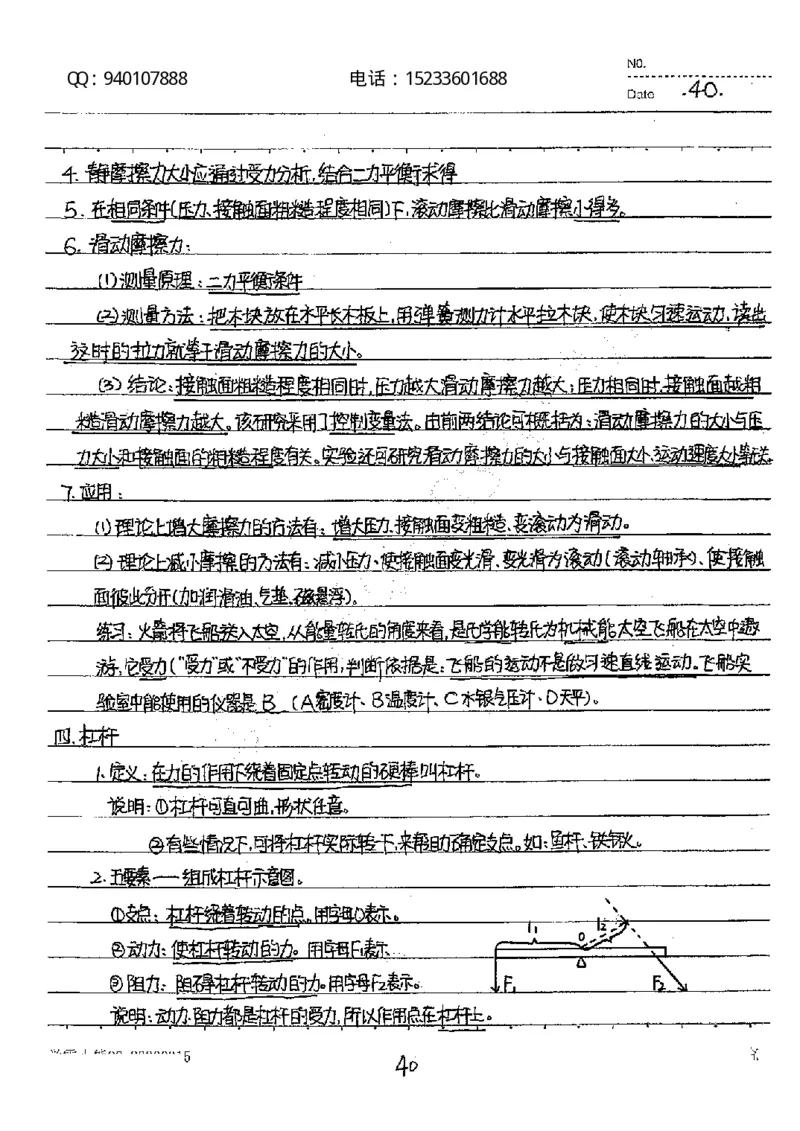 QQ：940107888 电话：15233601688 NO.
Date .40.
4. 静摩擦力大小应通过受力分析,结合二力平衡求得
5. 在相同条件(压力、接触面粗糙程度相同)下,滚动摩擦比滑动摩擦小得多。
6. 滑动摩擦力:
(1)测量原理:二力平衡条件
(2)测量方法:把木块放在水平长木板上,用弹簧测力计水平拉木块,使木块匀速运动,读出
这时的拉力就等于滑动摩擦力的大小。
(3)结论:接触面粗糙程度相同时,压力越大滑动摩擦力越大;压力相同时,接触面越粗
糙滑动摩擦力越大。该研究采用了控制变量法。由前两结论可概括为:滑动摩擦力的大小与压
力大小和接触面的粗糙程度有关。实验还可研究滑动摩擦力的大小与接触面大小、运动速度大小等无关。
7.应用:
(1)理论上增大摩擦力的方法有:增大压力、接触面变粗糙、变滚动为滑动。
(2)理论上减小摩擦的方法有:减小压力、使接触面变光滑、变光滑为滚动(滚动轴承)、使接触
面彼此分开(加润滑油、气垫、磁悬浮)。
练习:火箭将飞船送入太空,从能量转化的角度来看,是化学能转化为机械能太空飞船在太空中遨
游,它受力("受力"或"不受力"的作用,判断依据是:飞船的运动不是做匀速直线运动。飞船实
验室中能使用的仪器是 B (A密度计、B温度计、C水银气压计、D天平)。
四.杠杆
1.定义:在力的作用下绕着固定点转动的硬棒叫杠杆。
说明:①杠杆可直可曲,形状任意。
②有些情况下,可将杠杆实际转一下,来帮助确定支点。如:鱼杆、铁锹。
2.五要素──组成杠杆示意图。
①支点:杠杆绕着转动的点。用字母O表示。
②动力:使杠杆转动的力。用字母F1表示。
③阻力:阻碍杠杆转动的力。用字母F2表示。
说明:动力、阻力都是杠杆的受力,所以作用点在杠杆上。
l1 O l2
F1 F2
40